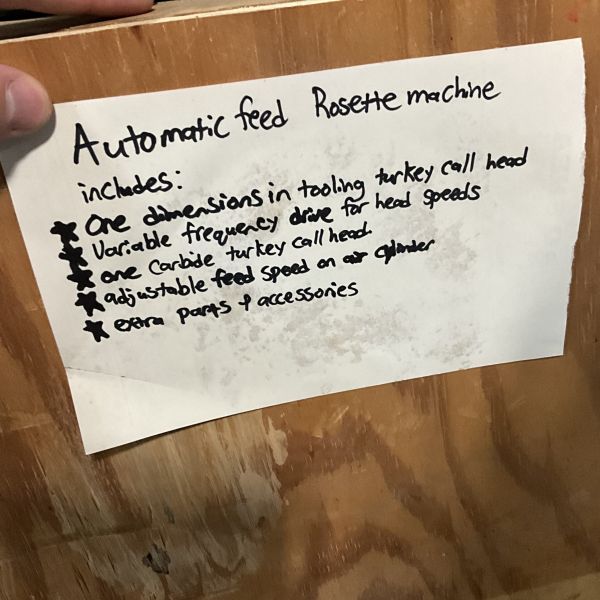 Automatic feed Rosette machine
includes:
★ One dimensions in tooling turkey call head
★ Variable frequency drive for head speeds
★ one Carbide turkey call head.
★ adjustable feed speed on air cylinder
★ extra parts & accessories